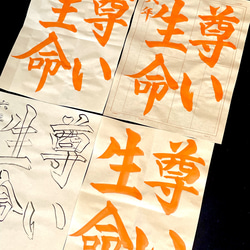 尊い
生命
尊い
生命
尊い
生命
尊い
生命